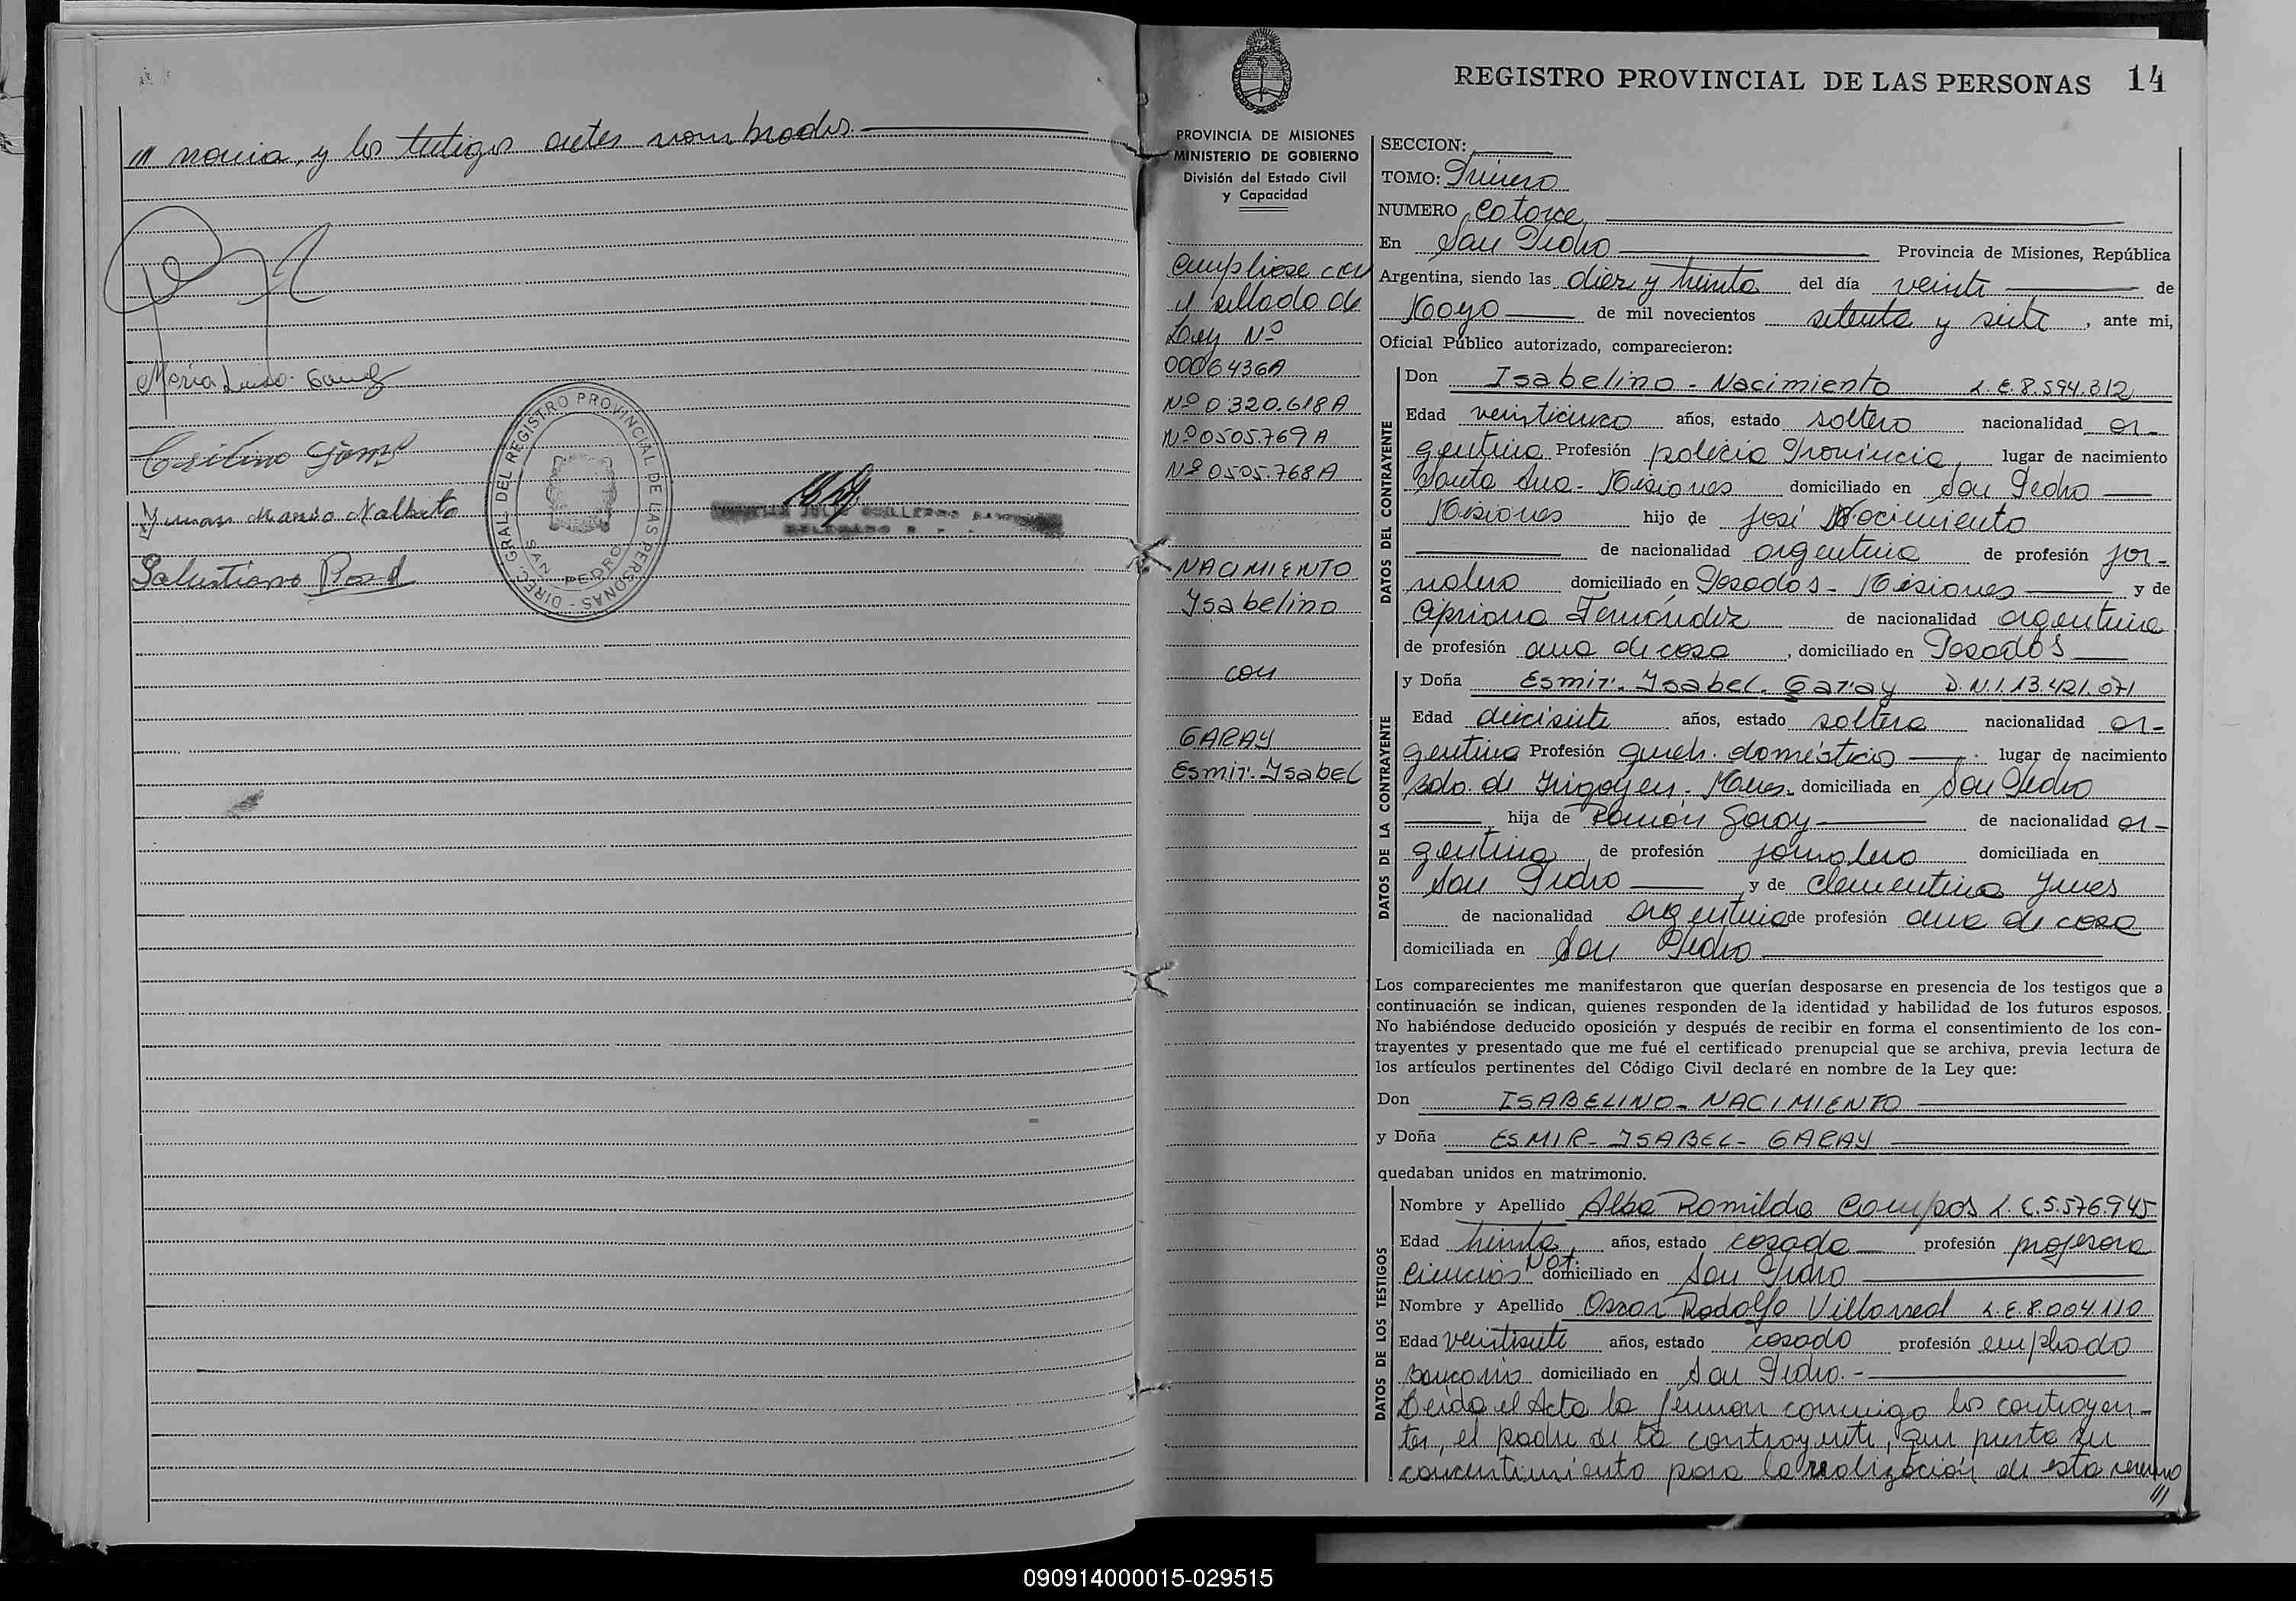 /// monia, y los testigos antes nombrados.
Maria Luisa
Salustiano
DIREC. GRAL. DEL REGISTRO PROVINCIAL DE LAS PERSONAS -
SAN PEDRO
REGISTRO PROVINCIAL DE LAS PERSONAS 14
PROVINCIA DE MISIONES
MINISTERIO DE GOBIERNO
División del Estado Civil
y Capacidad
Cumpliose con
el sellado de
Ley Nº
0006436A
Nº 0320.618A
Nº 0505.769A
Nº 0505.768A
NACIMIENTO
Ysabelino
con
GARAY
Esmir-Ysabel
SECCION:
TOMO: Primero
NUMERO Catorce
En San Pedro Provincia de Misiones, República
Argentina, siendo las diez y treinta del día veinte de
Mayo de mil novecientos setenta y siete, ante mi,
Oficial Público autorizado, comparecieron:
DATOS DEL CONTRAYENTE
Don Isabelino - Nacimiento L.E. 8.594.312
Edad veinticinco años, estado soltero nacionalidad ar-
gentina Profesión policia Provincia, lugar de nacimiento
Santa Ana - Misiones domiciliado en San Pedro
Misiones hijo de José Nacimiento
de nacionalidad argentina de profesión jor-
nalero domiciliado en Posadas - Misiones y de
Cipriana Fernández de nacionalidad argentina
de profesión ama de casa, domiciliado en Posadas
DATOS DE LA CONTRAYENTE
y Doña Esmir. Ysabel. Garay D.N.I. 13.421.071
Edad diecisiete años, estado soltera nacionalidad ar-
gentina Profesión queh. domésticos lugar de nacimiento
Bdo. de Irigoyen. Mnes. domiciliada en San Pedro
hija de Ramón Garay de nacionalidad ar-
gentina de profesión jornalero domiciliada en
San Pedro y de Clementina Yunes
de nacionalidad argentina de profesión ama de casa
domiciliada en San Pedro
Los comparecientes me manifestaron que querían desposarse en presencia de los testigos que a
continuación se indican, quienes responden de la identidad y habilidad de los futuros esposos.
No habiéndose deducido oposición y después de recibir en forma el consentimiento de los con-
trayentes y presentado que me fué el certificado prenupcial que se archiva, previa lectura de
los artículos pertinentes del Código Civil declaré en nombre de la Ley que:
Don ISABELINO - NACIMIENTO
y Doña ESMIR - YSABEL - GARAY
quedaban unidos en matrimonio.
DATOS DE LOS TESTIGOS
Nombre y Apellido Alba Romilda Campos L.C. 5.576.945
Edad treinta, años, estado casada profesión profesora
Ciencias Nat. domiciliado en San Pedro
Nombre y Apellido Oscar Rodolfo Villarreal L.E. 8.004.110
Edad veintisiete años, estado casado profesión empleado
bancario domiciliado en San Pedro. -
Leida el Acta la firman conmigo los contrayen-
tes, el padre de la contrayente, que presta su
concentimiento para la realización de esta ceremo
///
090914000015-029515